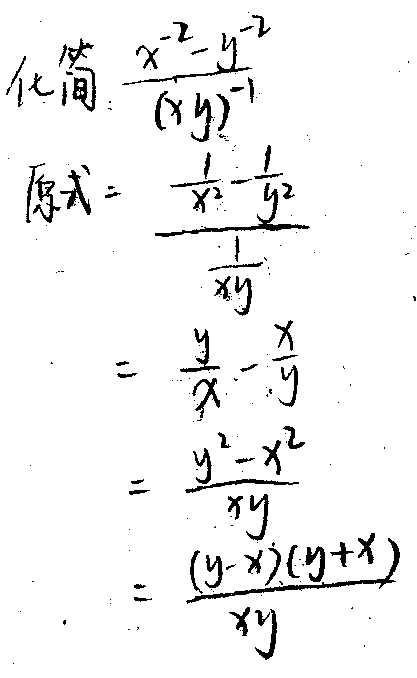 化简 \frac{x^{-2}-y^{-2}}{(xy)^{-1}}
原式= \frac{\frac{1}{x^2}-\frac{1}{y^2}}{\frac{1}{xy}}
= \frac{y}{x}-\frac{x}{y}
= \frac{y^2-x^2}{xy}
= \frac{(y-x)(y+x)}{xy}